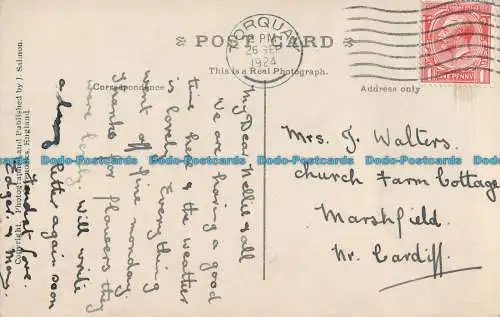 TORQUAY
2 PM
26 SEP
1924
POST CARD
This is a Real Photograph.
Correspondence
Address only
ONE PENNY
My Dear Nellie & all
We are having a good
time here & the weather
is lovely. Everything
went off fine monday.
Thanks for flowers they
were lovely will write
a long letter again soon
Fondest love.
Edgar & May.
Mrs. J. Walters.
Church Farm Cottage
Marshfield.
Nr. Cardiff.
Copyright. Photographed and Published by J. Salmon,
Sevenoaks, England.
Dodo-Postcards Dodo-Postcards Dodo-Postcards Dodo-Postcards